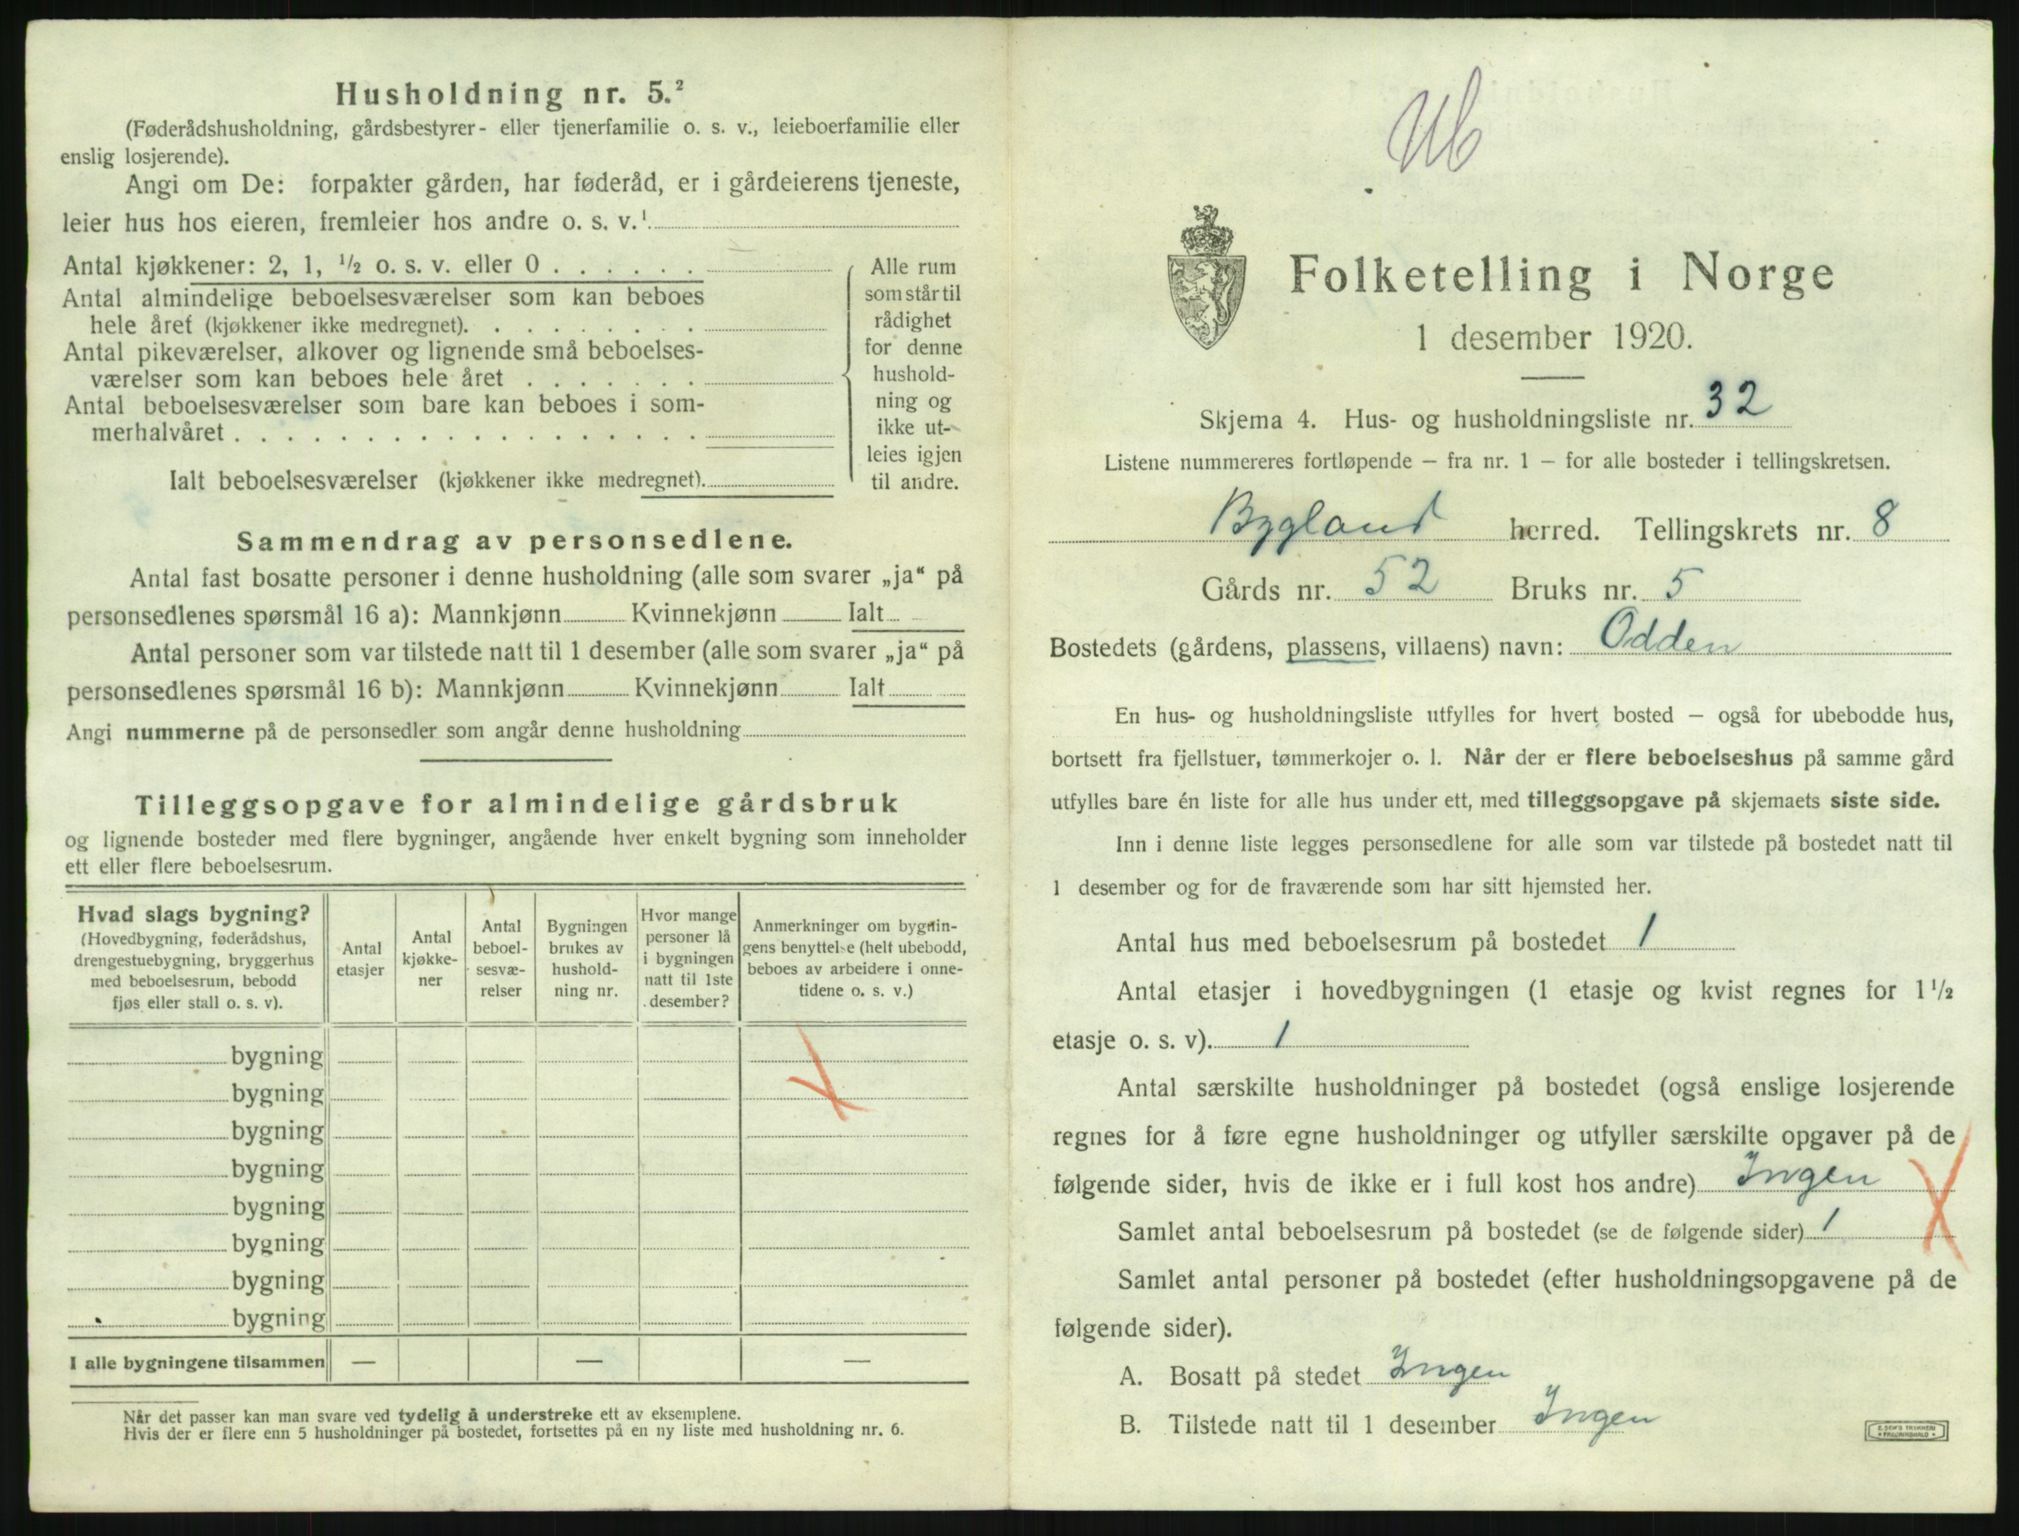 Husholdning nr. 5.²
(Føderådshusholdning, gårdsbestyrer- eller tjenerfamilie o. s. v., leieboerfamilie eller
enslig losjerende).
Angi om De: forpakter gården, har føderåd, er i gårdeierens tjeneste,
leier hus hos eieren, fremleier hos andre o. s. v.¹
Antal kjøkkener: 2, 1, ½ o. s. v. eller 0 . . . . . .
Antal almindelige beboelsesværelser som kan beboes
hele året (kjøkkener ikke medregnet). . . . . . . . .
Antal pikeværelser, alkover og lignende små beboelses-
værelser som kan beboes hele året . . . . . . .
Antal beboelsesværelser som bare kan beboes i som-
merhalvåret . . . . . . . . . . . . . . . . . .
Ialt beboelsesværelser (kjøkkener ikke medregnet).
Alle rum
som står til
rådighet
for denne
hushold-
ning og
ikke ut-
leies igjen
til andre.
Sammendrag av personsedlene.
Antal fast bosatte personer i denne husholdning (alle som svarer „ja“ på
personsedlenes spørsmål 16 a): Mannkjønn Kvinnekjønn Ialt
Antal personer som var tilstede natt til 1 desember (alle som svarer „ja“ på
personsedlenes spørsmål 16 b): Mannkjønn Kvinnekjønn Ialt
Angi nummerne på de personsedler som angår denne husholdning
Tilleggsopgave for almindelige gårdsbruk
og lignende bosteder med flere bygninger, angående hver enkelt bygning som inneholder
ett eller flere beboelsesrum.
Hvad slags bygning?
(Hovedbygning, føderådshus,
drengestuebygning, bryggerhus
med beboelsesrum, bebodd
fjøs eller stall o. s. v).
Antal
etasjer
Antal
kjøkke-
ner
Antal
beboel-
sesvæ-
relser
Bygningen
brukes av
hushold-
ning nr.
Hvor mange
personer lå
i bygningen
natt til 1ste
desember?
Anmerkninger om bygnin-
gens benyttelse (helt ubebodd,
beboes av arbeidere i onne-
tidene o. s. v.)
bygning
bygning
bygning
bygning
bygning
bygning
bygning
bygning
I alle bygningene tilsammen — — —
Når det passer kan man svare ved tydelig å understreke ett av eksemplene.
Hvis der er flere enn 5 husholdninger på bostedet, fortsettes på en ny liste med husholdning nr. 6.
Ub
Folketelling i Norge
1 desember 1920.
Skjema 4. Hus- og husholdningsliste nr. 32
Listene nummereres fortløpende — fra nr. 1 — for alle bosteder i tellingskretsen.
Bygland herred. Tellingskrets nr. 8
Gårds nr. 52 Bruks nr. 5
Bostedets (gårdens, plassens, villaens) navn: Odden
En hus- og husholdningsliste utfylles for hvert bosted — også for ubebodde hus,
bortsett fra fjellstuer, tømmerkojer o. l. Når der er flere beboelseshus på samme gård
utfylles bare én liste for alle hus under ett, med tilleggsopgave på skjemaets siste side.
Inn i denne liste legges personsedlene for alle som var tilstede på bostedet natt til
1 desember og for de fraværende som har sitt hjemsted her.
Antal hus med beboelsesrum på bostedet 1
Antal etasjer i hovedbygningen (1 etasje og kvist regnes for 1½
etasje o. s. v). 1
Antal særskilte husholdninger på bostedet (også enslige losjerende
regnes for å føre egne husholdninger og utfyller særskilte opgaver på de
følgende sider, hvis de ikke er i full kost hos andre) Ingen
Samlet antal beboelsesrum på bostedet (se de følgende sider) 1
Samlet antal personer på bostedet (efter husholdningsopgavene på de
følgende sider).
A. Bosatt på stedet Ingen
B. Tilstede natt til 1 desember Ingen